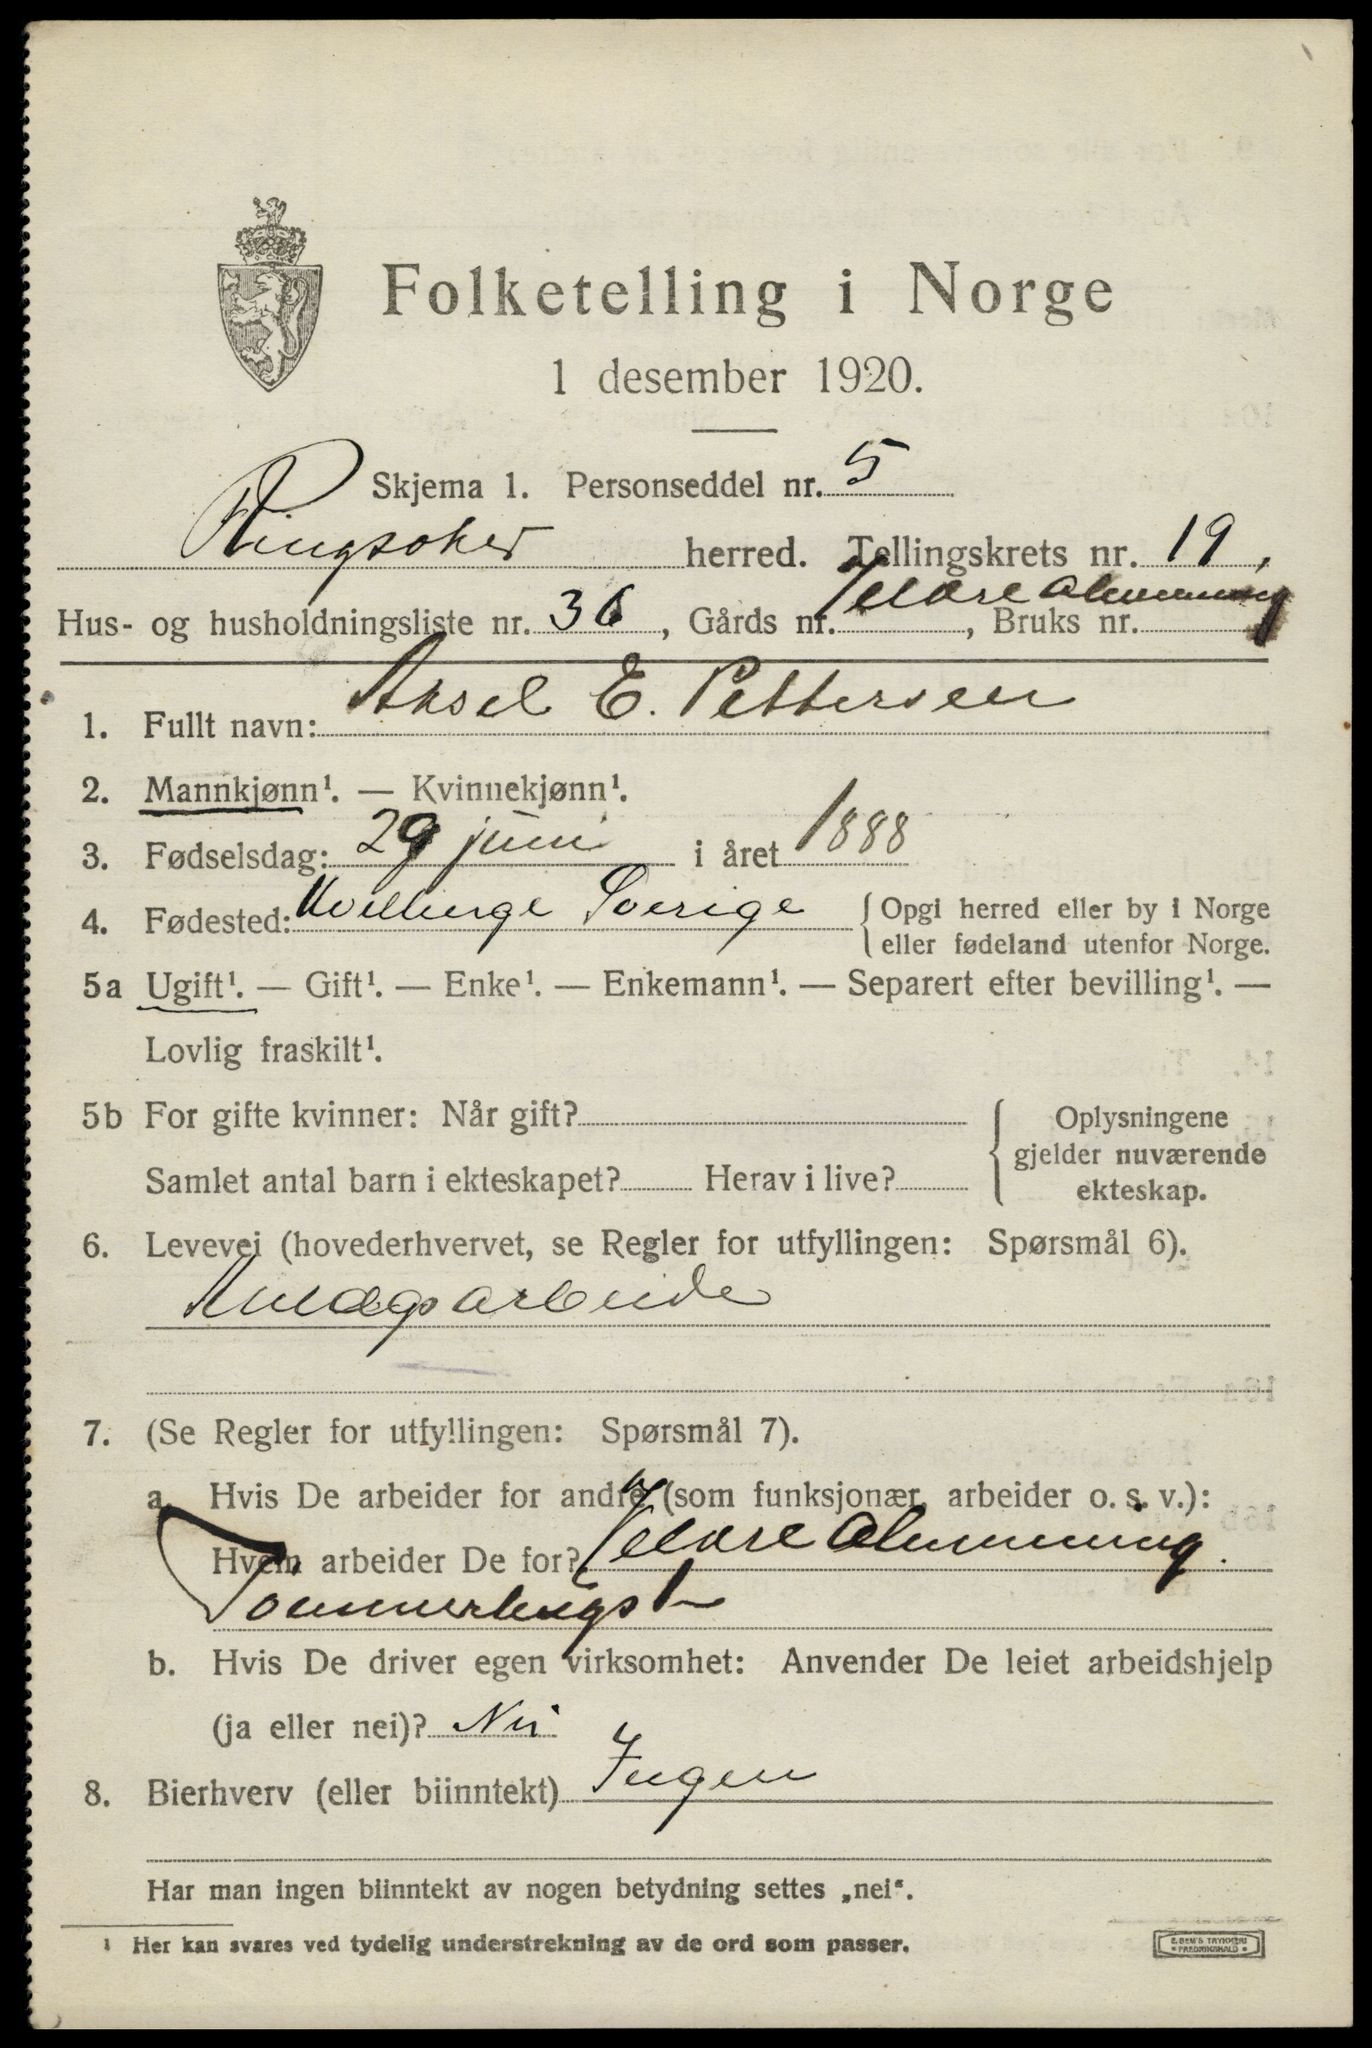 Folketelling i Norge
1 desember 1920.
Skjema 1. Personseddel nr. 5
Ringsaker herred. Tellingskrets nr. 19,
Hus- og husholdningsliste nr. 36, Gårds nr. Veldre Almenning, Bruks nr.
1. Fullt navn: Aksel E. Pettersen
2. Mannkjønn¹. — Kvinnekjønn¹.
3. Fødselsdag: 29 juni i året 1888
4. Fødested: Sverige { Opgi herred eller by i Norge
eller fødeland utenfor Norge.
5a Ugift¹. — Gift¹. — Enke¹. — Enkemann¹. — Separert efter bevilling¹. —
Lovlig fraskilt¹.
5b For gifte kvinner: Når gift? { Oplysningene
gjelder nuværende
Samlet antal barn i ekteskapet? Herav i live? ekteskap.
6. Levevei (hovederhvervet, se Regler for utfyllingen: Spørsmål 6).
Anlægsarbeide
7. (Se Regler for utfyllingen: Spørsmål 7).
a. Hvis De arbeider for andre (som funksjonær, arbeider o. s. v.):
Hvem arbeider De for? Veldre Almenning.
b. Hvis De driver egen virksomhet: Anvender De leiet arbeidshjelp
(ja eller nei)? Nei
8. Bierhverv (eller biinntekt) Ingen
Har man ingen biinntekt av nogen betydning settes „nei“.
¹ Her kan svares ved tydelig understrekning av de ord som passer.
E. SEM'S TRYKKERI
FREDRIKSHALD